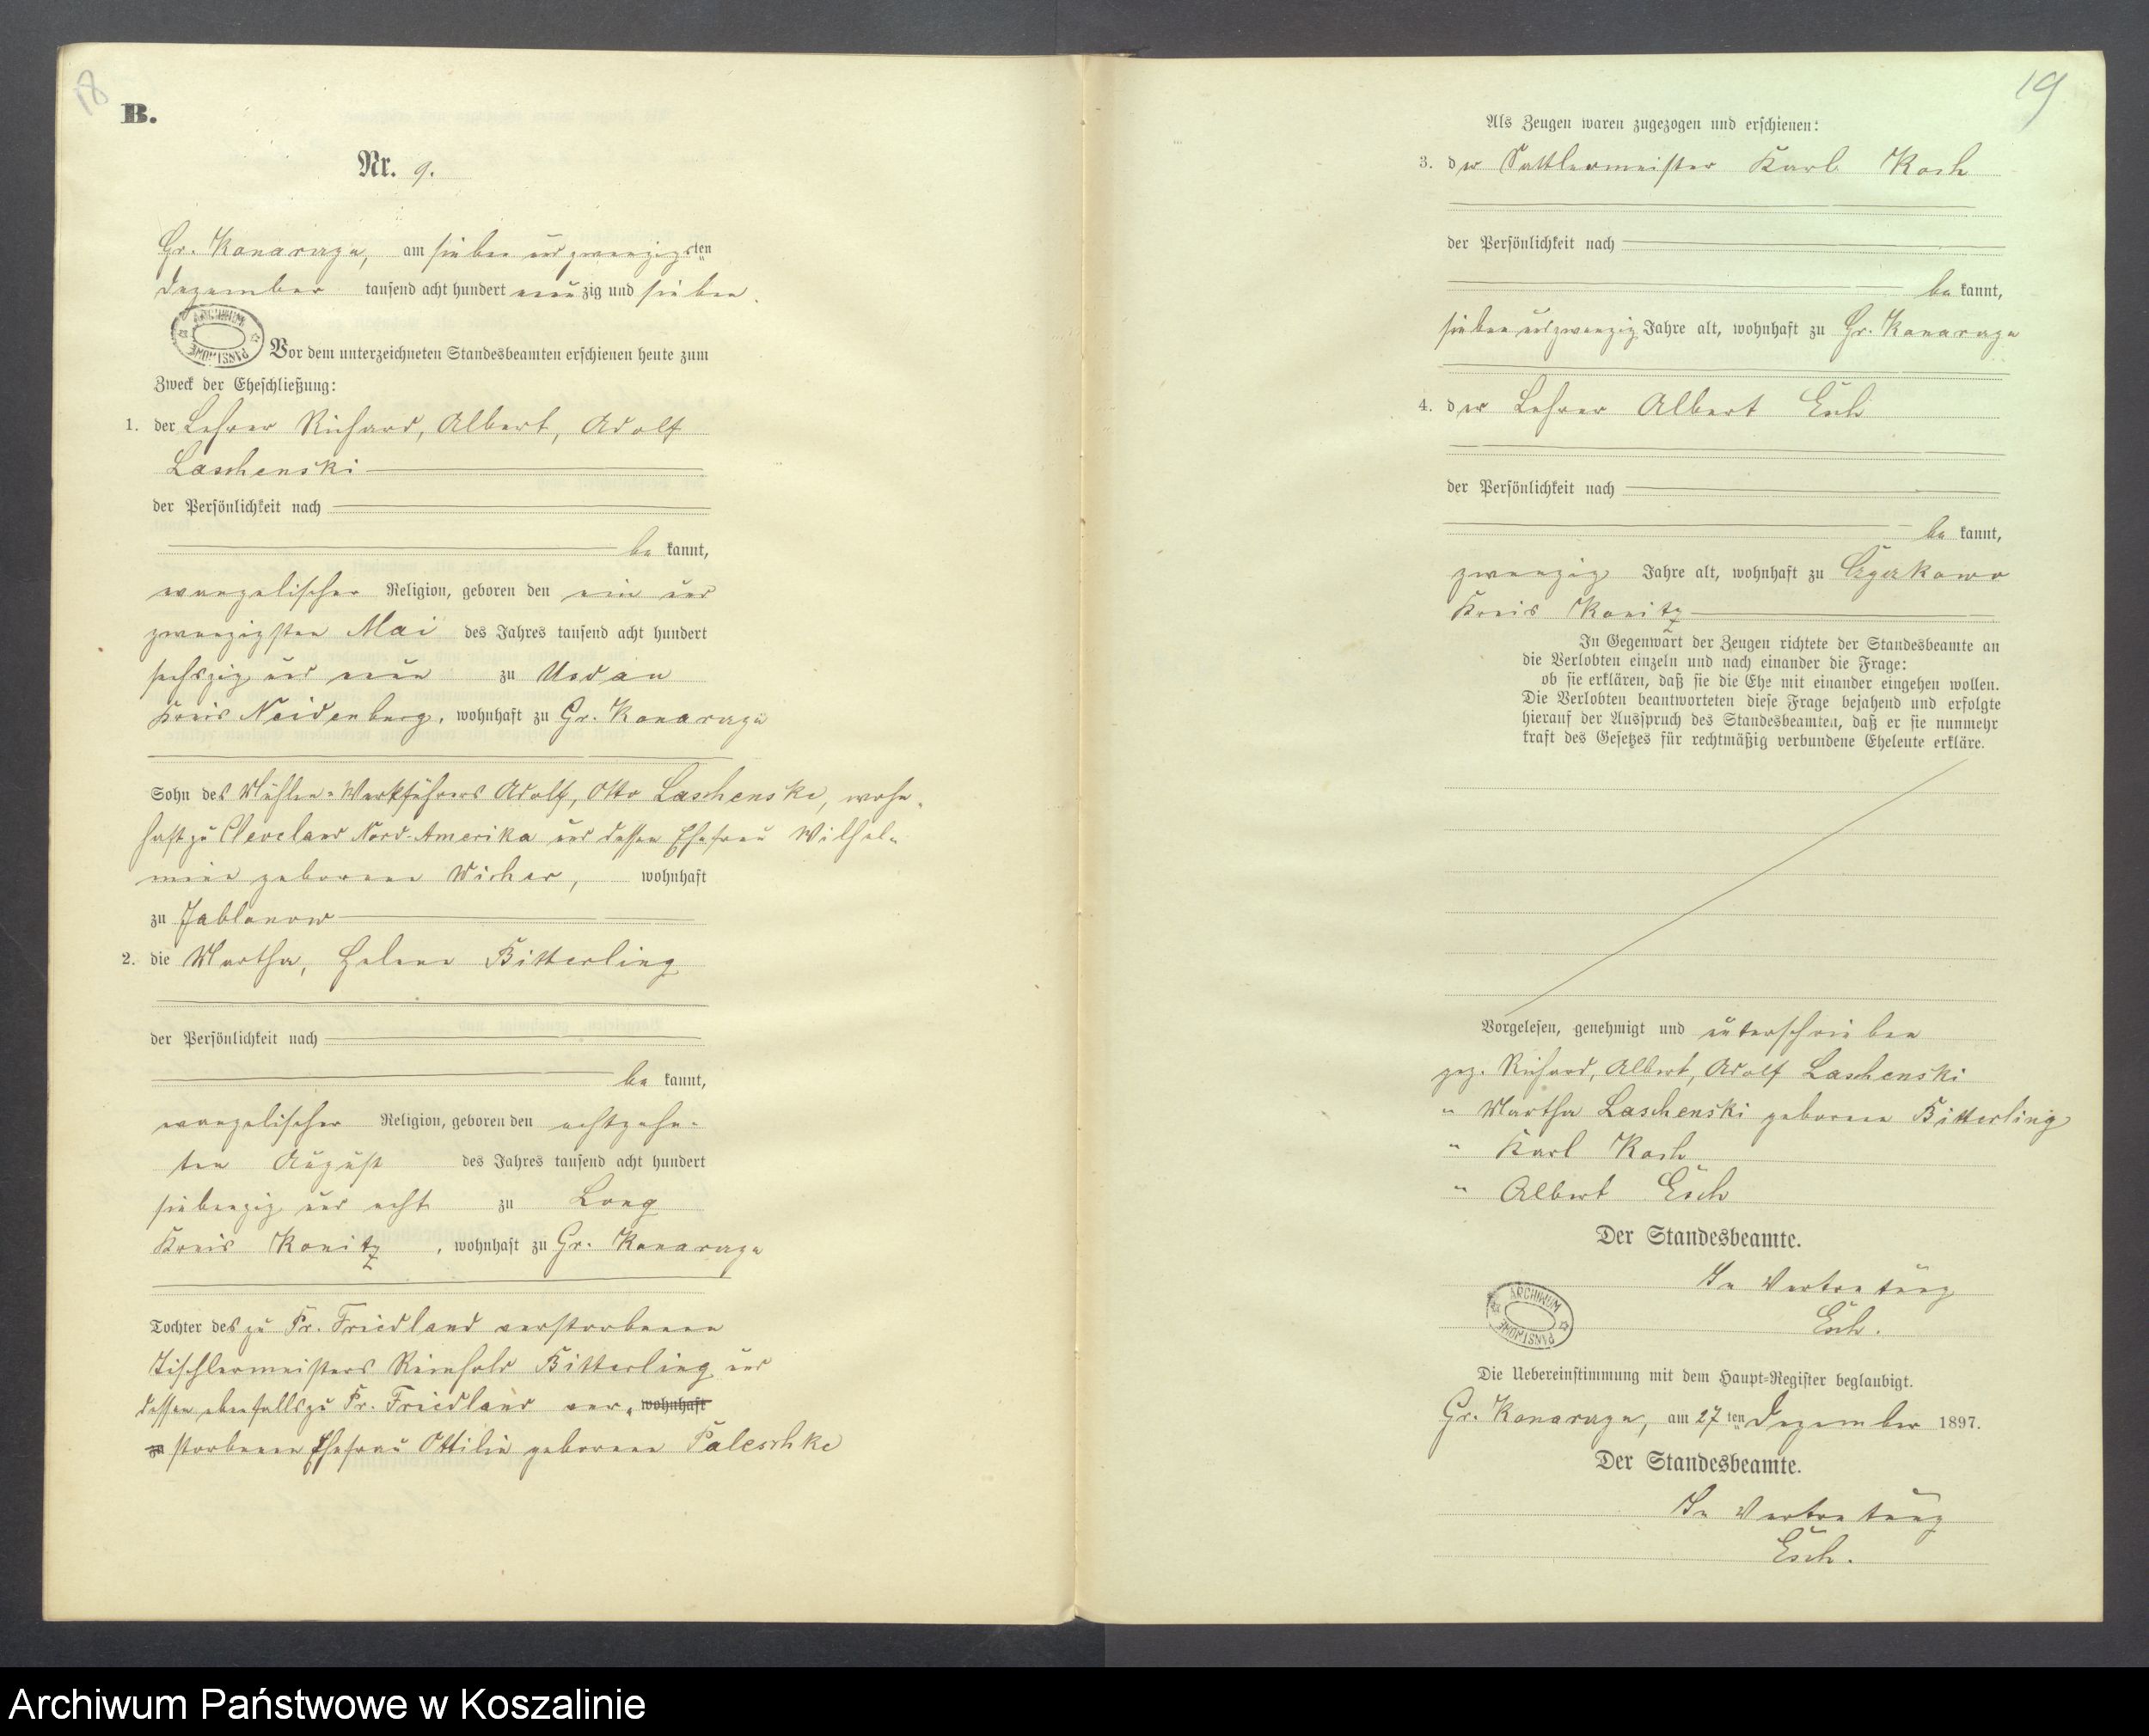 18
B.
Nr. 9.
Gr. Konarczyn, am sieben und zwanzigsten
Dezember tausend acht hundert neunzig und sieben.
ARCHIWUM PAŃSTWOWE
Vor dem unterzeichneten Standesbeamten erschienen heute zum
Zweck der Eheschließung:
1. der Lehrer Richard, Albert, Adolf
Laschenski
der Persönlichkeit nach
be kannt,
evangelischer Religion, geboren den ein und
zwanzigsten Mai des Jahres tausend acht hundert
sechszig und neun zu Usdau
Kreis Neidenburg, wohnhaft zu Gr. Konarczyn
Sohn des Mühlen-Werkführers Adolf, Otto Laschenski, wohn-
haft zu Cleveland Nord-Amerika und dessen Ehefrau Wilhel-
mine geborenen Wicher, wohnhaft
zu Jablonow
2. die Martha, Helene Bitterling
der Persönlichkeit nach
be kannt,
evangelischer Religion, geboren den achtzehn-
ten August des Jahres tausend acht hundert
siebenzig und acht zu Long
Kreis Konitz, wohnhaft zu Gr. Konarczyn
Tochter des zu Pr. Friedland verstorbenen
Tischlermeisters Reinhold Bitterling und
dessen ebenfalls zu Pr. Friedland ver- wohnhaft
zu storbenen Ehefrau Ottilie geborenen Paleschke
19
Als Zeugen waren zugezogen und erschienen:
3. der Sattlermeister Karl Koch
der Persönlichkeit nach
be kannt,
sieben und zwanzig Jahre alt, wohnhaft zu Gr. Konarczyn
4. der Lehrer Albert Esch
der Persönlichkeit nach
be kannt,
zwanzig Jahre alt, wohnhaft zu
Kreis Konitz
In Gegenwart der Zeugen richtete der Standesbeamte an
die Verlobten einzeln und nach einander die Frage:
ob sie erklären, daß sie die Ehe mit einander eingehen wollen.
Die Verlobten beantworteten diese Frage bejahend und erfolgte
hierauf der Ausspruch des Standesbeamten, daß er sie nunmehr
kraft des Gesetzes für rechtmäßig verbundene Eheleute erkläre.
Vorgelesen, genehmigt und unterschrieben
gez. Richard, Albert, Adolf Laschenski
" Martha Laschenski geborene Bitterling
" Karl Koch
" Albert Esch
Der Standesbeamte.
In Vertretung
ARCHIWUM PAŃSTWOWE
Esch.
Die Uebereinstimmung mit dem Haupt-Register beglaubigt.
Gr. Konarczyn, am 27 ten Dezember 1897.
Der Standesbeamte.
In Vertretung
Esch.
Archiwum Państwowe w Koszalinie